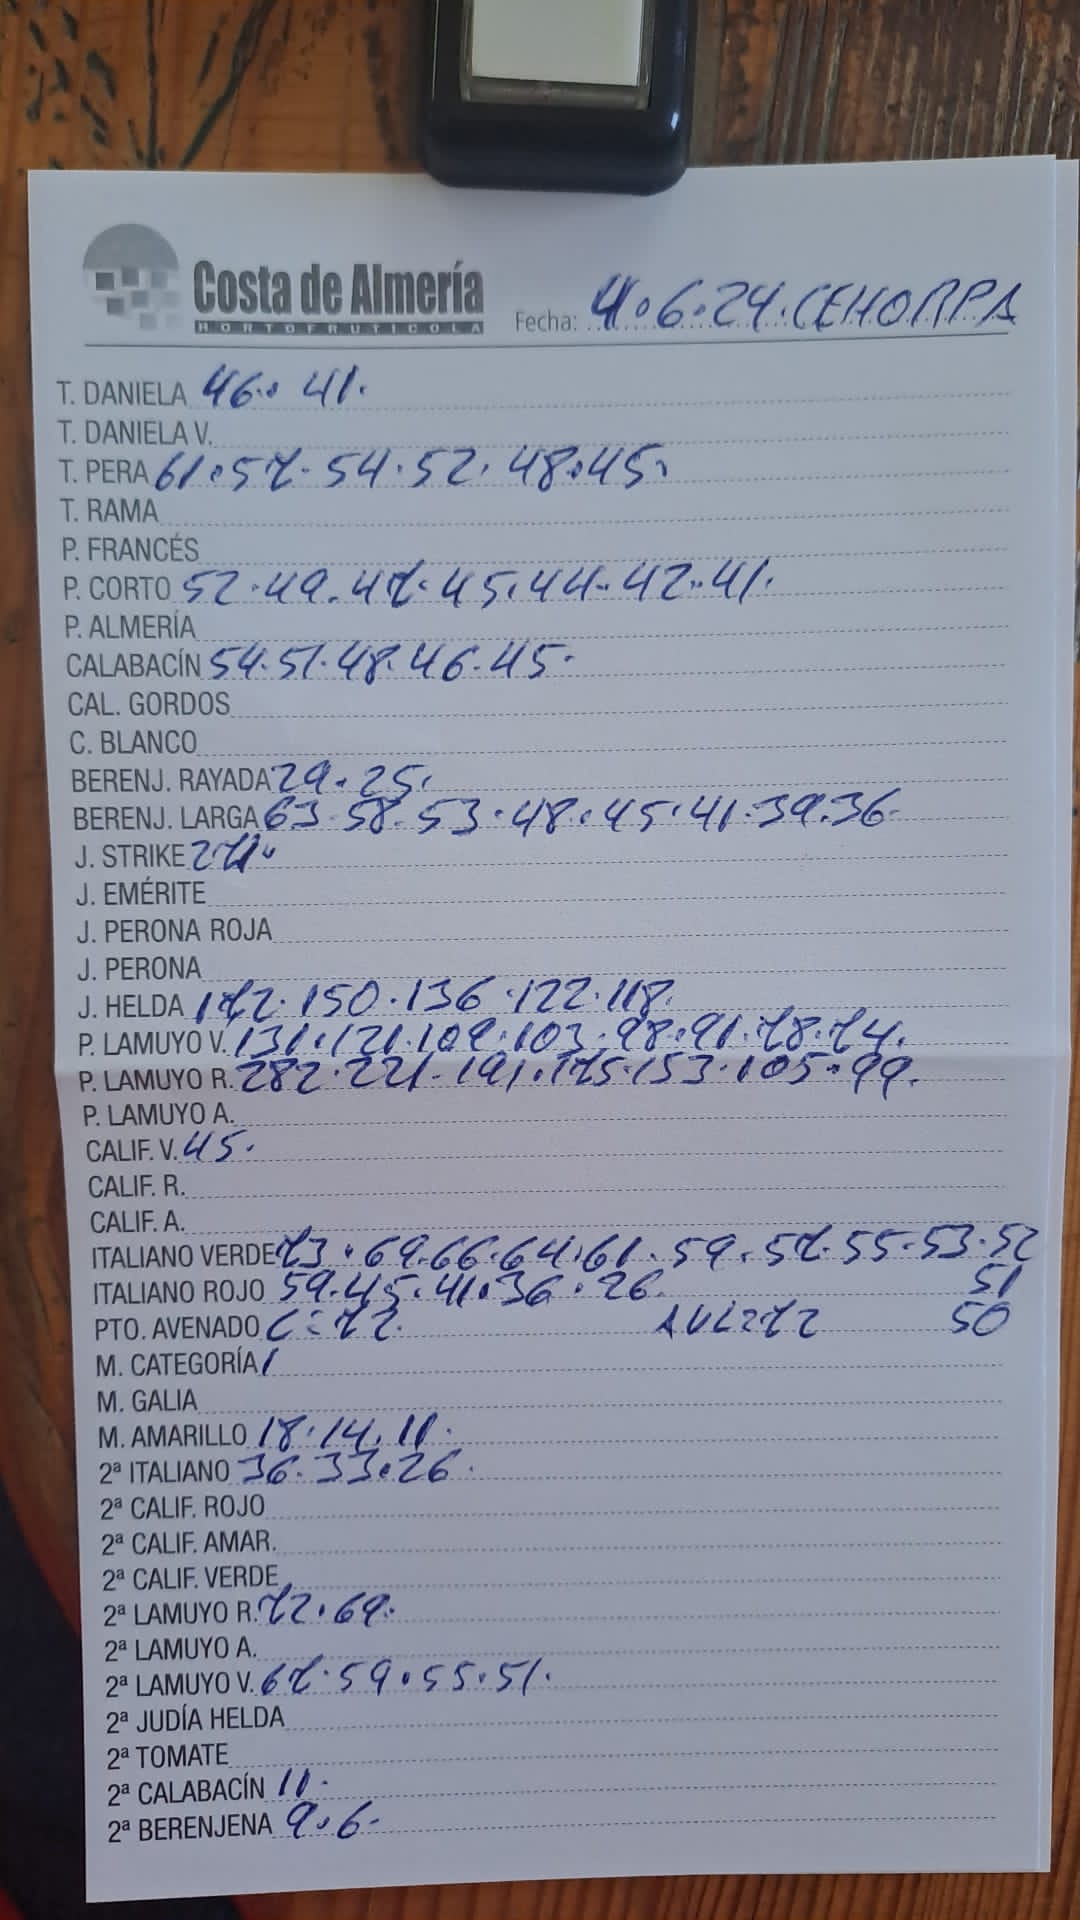 Costa de Almería
HORTOFRUTICOLA
Fecha: 4.6.24.CEHORPA
T. DANIELA 46. 41.
T. DANIELA V.
T. PERA 61.57.54.52.48.45.
T. RAMA
P. FRANCÉS
P. CORTO 52.49.47.45.44.42.41.
P. ALMERÍA
CALABACÍN 54.51.48.46.45.
CAL. GORDOS
C. BLANCO
BERENJ. RAYADA 29.25.
BERENJ. LARGA 63.58.53.48.45.41.39.36.
J. STRIKE
J. EMÉRITE
J. PERONA ROJA
J. PERONA
J. HELDA 172.150.136.122.118.
P. LAMUYO V. 131.121.109.103.98.91.78.74.
P. LAMUYO R. 282.221.191.175.153.105.99.
P. LAMUYO A.
CALIF. V. 45.
CALIF. R.
CALIF. A.
ITALIANO VERDE 73.69.66.64.61.59.57.55.53.52
ITALIANO ROJO 59.45.41.36.26. 51
PTO. AVENADO C=72. 50
M. CATEGORÍA
M. GALIA
M. AMARILLO 18.14.11.
2ª ITALIANO 36.33.26.
2ª CALIF. ROJO
2ª CALIF. AMAR.
2ª CALIF. VERDE
2ª LAMUYO R. 72.69.
2ª LAMUYO A.
2ª LAMUYO V. 67.59.55.51.
2ª JUDÍA HELDA
2ª TOMATE
2ª CALABACÍN 11.
2ª BERENJENA 9.6.